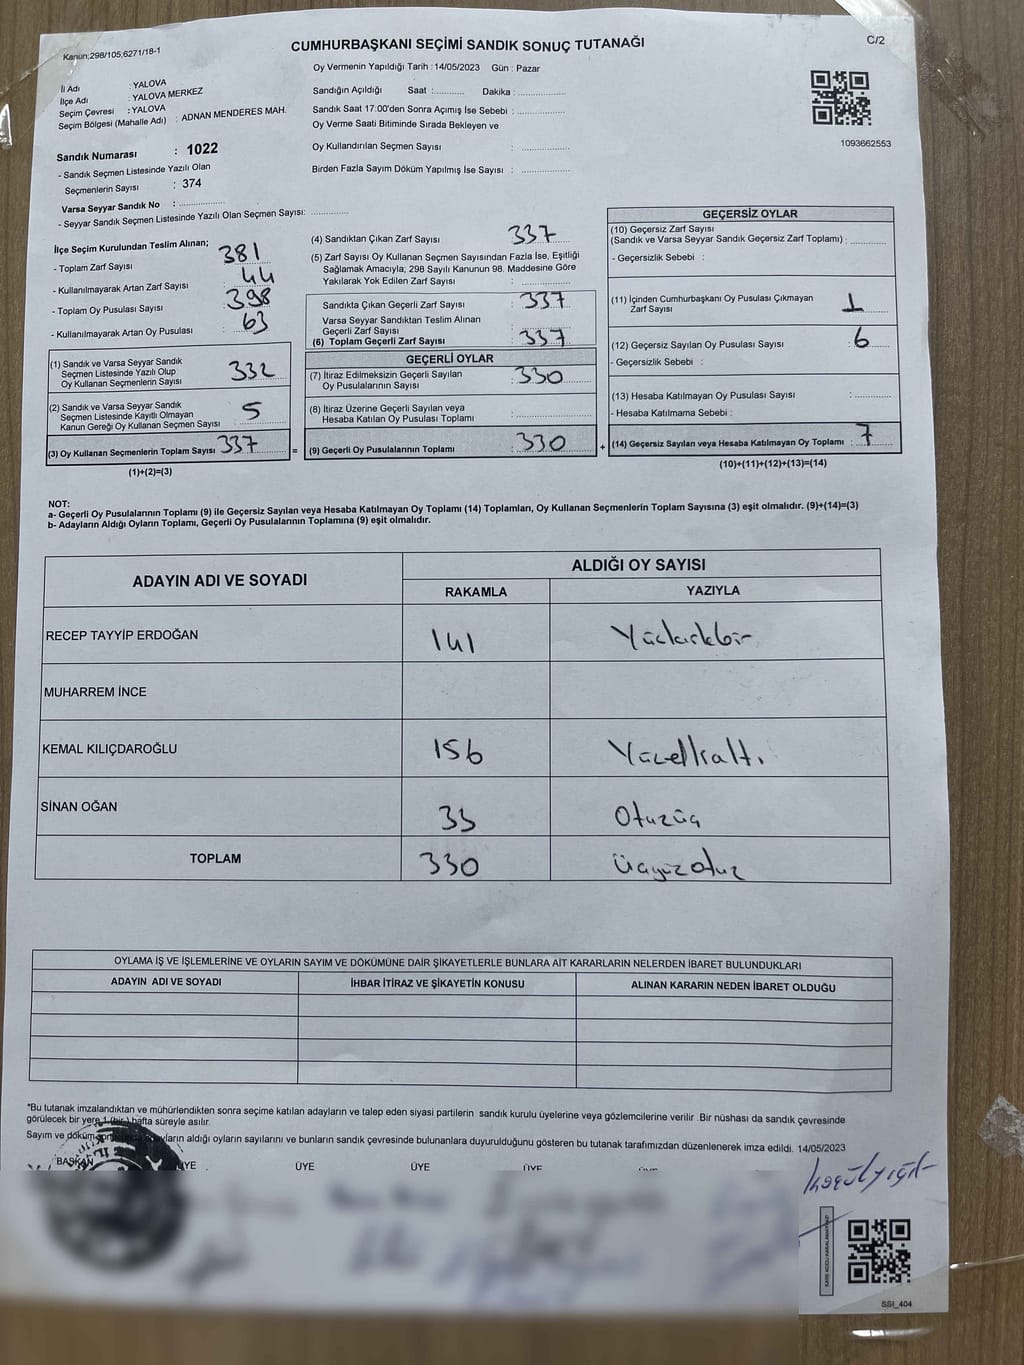 Kanun;298/105,6271/18-1
CUMHURBAŞKANI SEÇİMİ SANDIK SONUÇ TUTANAĞI
C/2
Oy Vermenin Yapıldığı Tarih : 14/05/2023 Gün : Pazar
İl Adı : YALOVA
İlçe Adı : YALOVA MERKEZ
Seçim Çevresi : YALOVA
Seçim Bölgesi (Mahalle Adı) : ADNAN MENDERES MAH.
Sandığın Açıldığı Saat :............ Dakika :....................
Sandık Saat 17:00'den Sonra Açımış İse Sebebi :....................
Oy Verme Saati Bitiminde Sırada Bekleyen ve
Oy Kullandırılan Seçmen Sayısı :....................
Birden Fazla Sayım Döküm Yapılmış İse Sayısı :....................
1093662553
Sandık Numarası : 1022
- Sandık Seçmen Listesinde Yazılı Olan
Seçmenlerin Sayısı : 374
Varsa Seyyar Sandık No :....................
- Seyyar Sandık Seçmen Listesinde Yazılı Olan Seçmen Sayısı:....................
İlçe Seçim Kurulundan Teslim Alınan;
- Toplam Zarf Sayısı 381
- Kullanılmayarak Artan Zarf Sayısı : 44
- Toplam Oy Pusulası Sayısı : 398
- Kullanılmayarak Artan Oy Pusulası : 63
(1) Sandık ve Varsa Seyyar Sandık
Seçmen Listesinde Yazılı Olup
Oy Kullanan Seçmenlerin Sayısı 332
(2) Sandık ve Varsa Seyyar Sandık
Seçmen Listesinde Kayıtlı Olmayan
Kanun Gereği Oy Kullanan Seçmen Sayısı : 5
(3) Oy Kullanan Seçmenlerin Toplam Sayısı : 337
(1)+(2)=(3)
(4) Sandıktan Çıkan Zarf Sayısı 337
(5) Zarf Sayısı Oy Kullanan Seçmen Sayısından Fazla İse, Eşitliği
Sağlamak Amacıyla; 298 Sayılı Kanunun 98. Maddesine Göre
Yakılarak Yok Edilen Zarf Sayısı :....................
Sandıkta Çıkan Geçerli Zarf Sayısı : 337
Varsa Seyyar Sandıktan Teslim Alınan
Geçerli Zarf Sayısı :
(6) Toplam Geçerli Zarf Sayısı : 337
GEÇERLİ OYLAR
(7) İtiraz Edilmeksizin Geçerli Sayılan
Oy Pusulalarının Sayısı : 330
(8) İtiraz Üzerine Geçerli Sayılan veya
Hesaba Katılan Oy Pusulası Toplamı :....................
= (9) Geçerli Oy Pusulalarının Toplamı : 330
GEÇERSİZ OYLAR
(10) Geçersiz Zarf Sayısı
(Sandık ve Varsa Seyyar Sandık Geçersiz Zarf Toplamı) :............
- Geçersizlik Sebebi :
(11) İçinden Cumhurbaşkanı Oy Pusulası Çıkmayan
Zarf Sayısı : 1
(12) Geçersiz Sayılan Oy Pusulası Sayısı : 6
- Geçersizlik Sebebi :
(13) Hesaba Katılmayan Oy Pusulası Sayısı :............
- Hesaba Katılmama Sebebi :
+ (14) Geçersiz Sayılan veya Hesaba Katılmayan Oy Toplamı : 7
(10)+(11)+(12)+(13)=(14)
NOT:
a- Geçerli Oy Pusulalarının Toplamı (9) ile Geçersiz Sayılan veya Hesaba Katılmayan Oy Toplamı (14) Toplamları, Oy Kullanan Seçmenlerin Toplam Sayısına (3) eşit olmalıdır. (9)+(14)=(3)
b- Adayların Aldığı Oyların Toplamı, Geçerli Oy Pusulalarının Toplamına (9) eşit olmalıdır.
ADAYIN ADI VE SOYADI
ALDIĞI OY SAYISI
RAKAMLA YAZIYLA
RECEP TAYYİP ERDOĞAN 141 Yüzkırkbir
MUHARREM İNCE
KEMAL KILIÇDAROĞLU 156 Yüzellialtı
SİNAN OĞAN 33 Otuzüç
TOPLAM 330 Üçyüzotuz
OYLAMA İŞ VE İŞLEMLERİNE VE OYLARIN SAYIM VE DÖKÜMÜNE DAİR ŞİKAYETLERLE BUNLARA AİT KARARLARIN NELERDEN İBARET BULUNDUKLARI
ADAYIN ADI VE SOYADI İHBAR İTİRAZ VE ŞİKAYETİN KONUSU ALINAN KARARIN NEDEN İBARET OLDUĞU
*Bu tutanak imzalandıktan ve mühürlendikten sonra seçime katılan adayların ve talep eden siyasi partilerin sandık kurulu üyelerine veya gözlemcilerine verilir .Bir nüshası da sandık çevresinde
görülecek bir yere 1 (bir) hafta süreyle asılır.
Sayım ve döküm adayların aldığı oyların sayılarını ve bunların sandık çevresinde bulunanlara duyurulduğunu gösteren bu tutanak tarafımızdan düzenlenerek imza edildi. 14/05/2023
BAŞKAN ÜYE ÜYE ÜYE ÜYE ÜYE
SSI_404